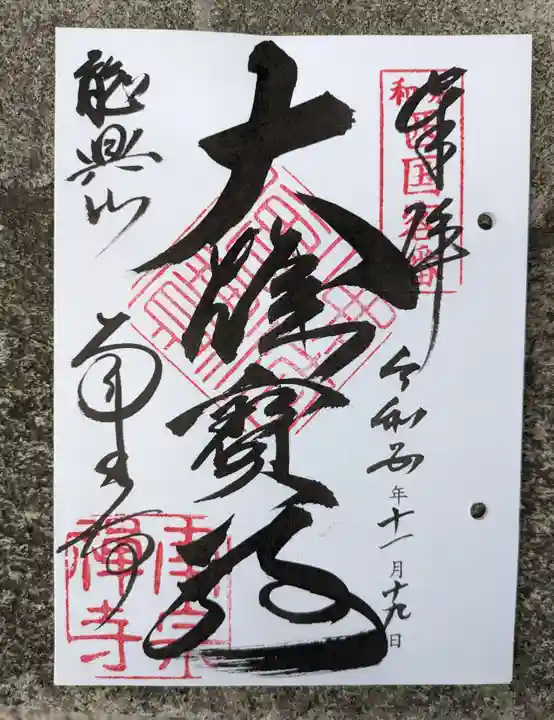 奉拝
和泉
西国客番
令和五年十一月十九日
大雄寶殿
龍興山
南宗寺
南宗
禅寺